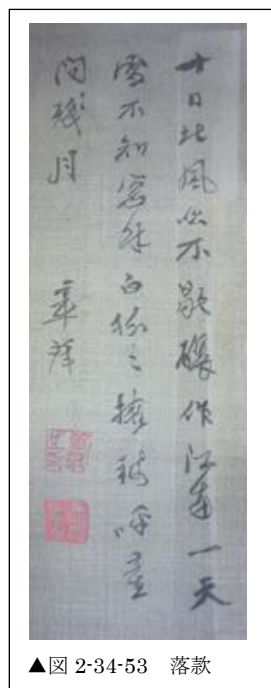 十日北風吹不歇釀作江南一天
雪不知窓外白紛〻擁被呼童
問殘月
▲図 2-34-53 落款